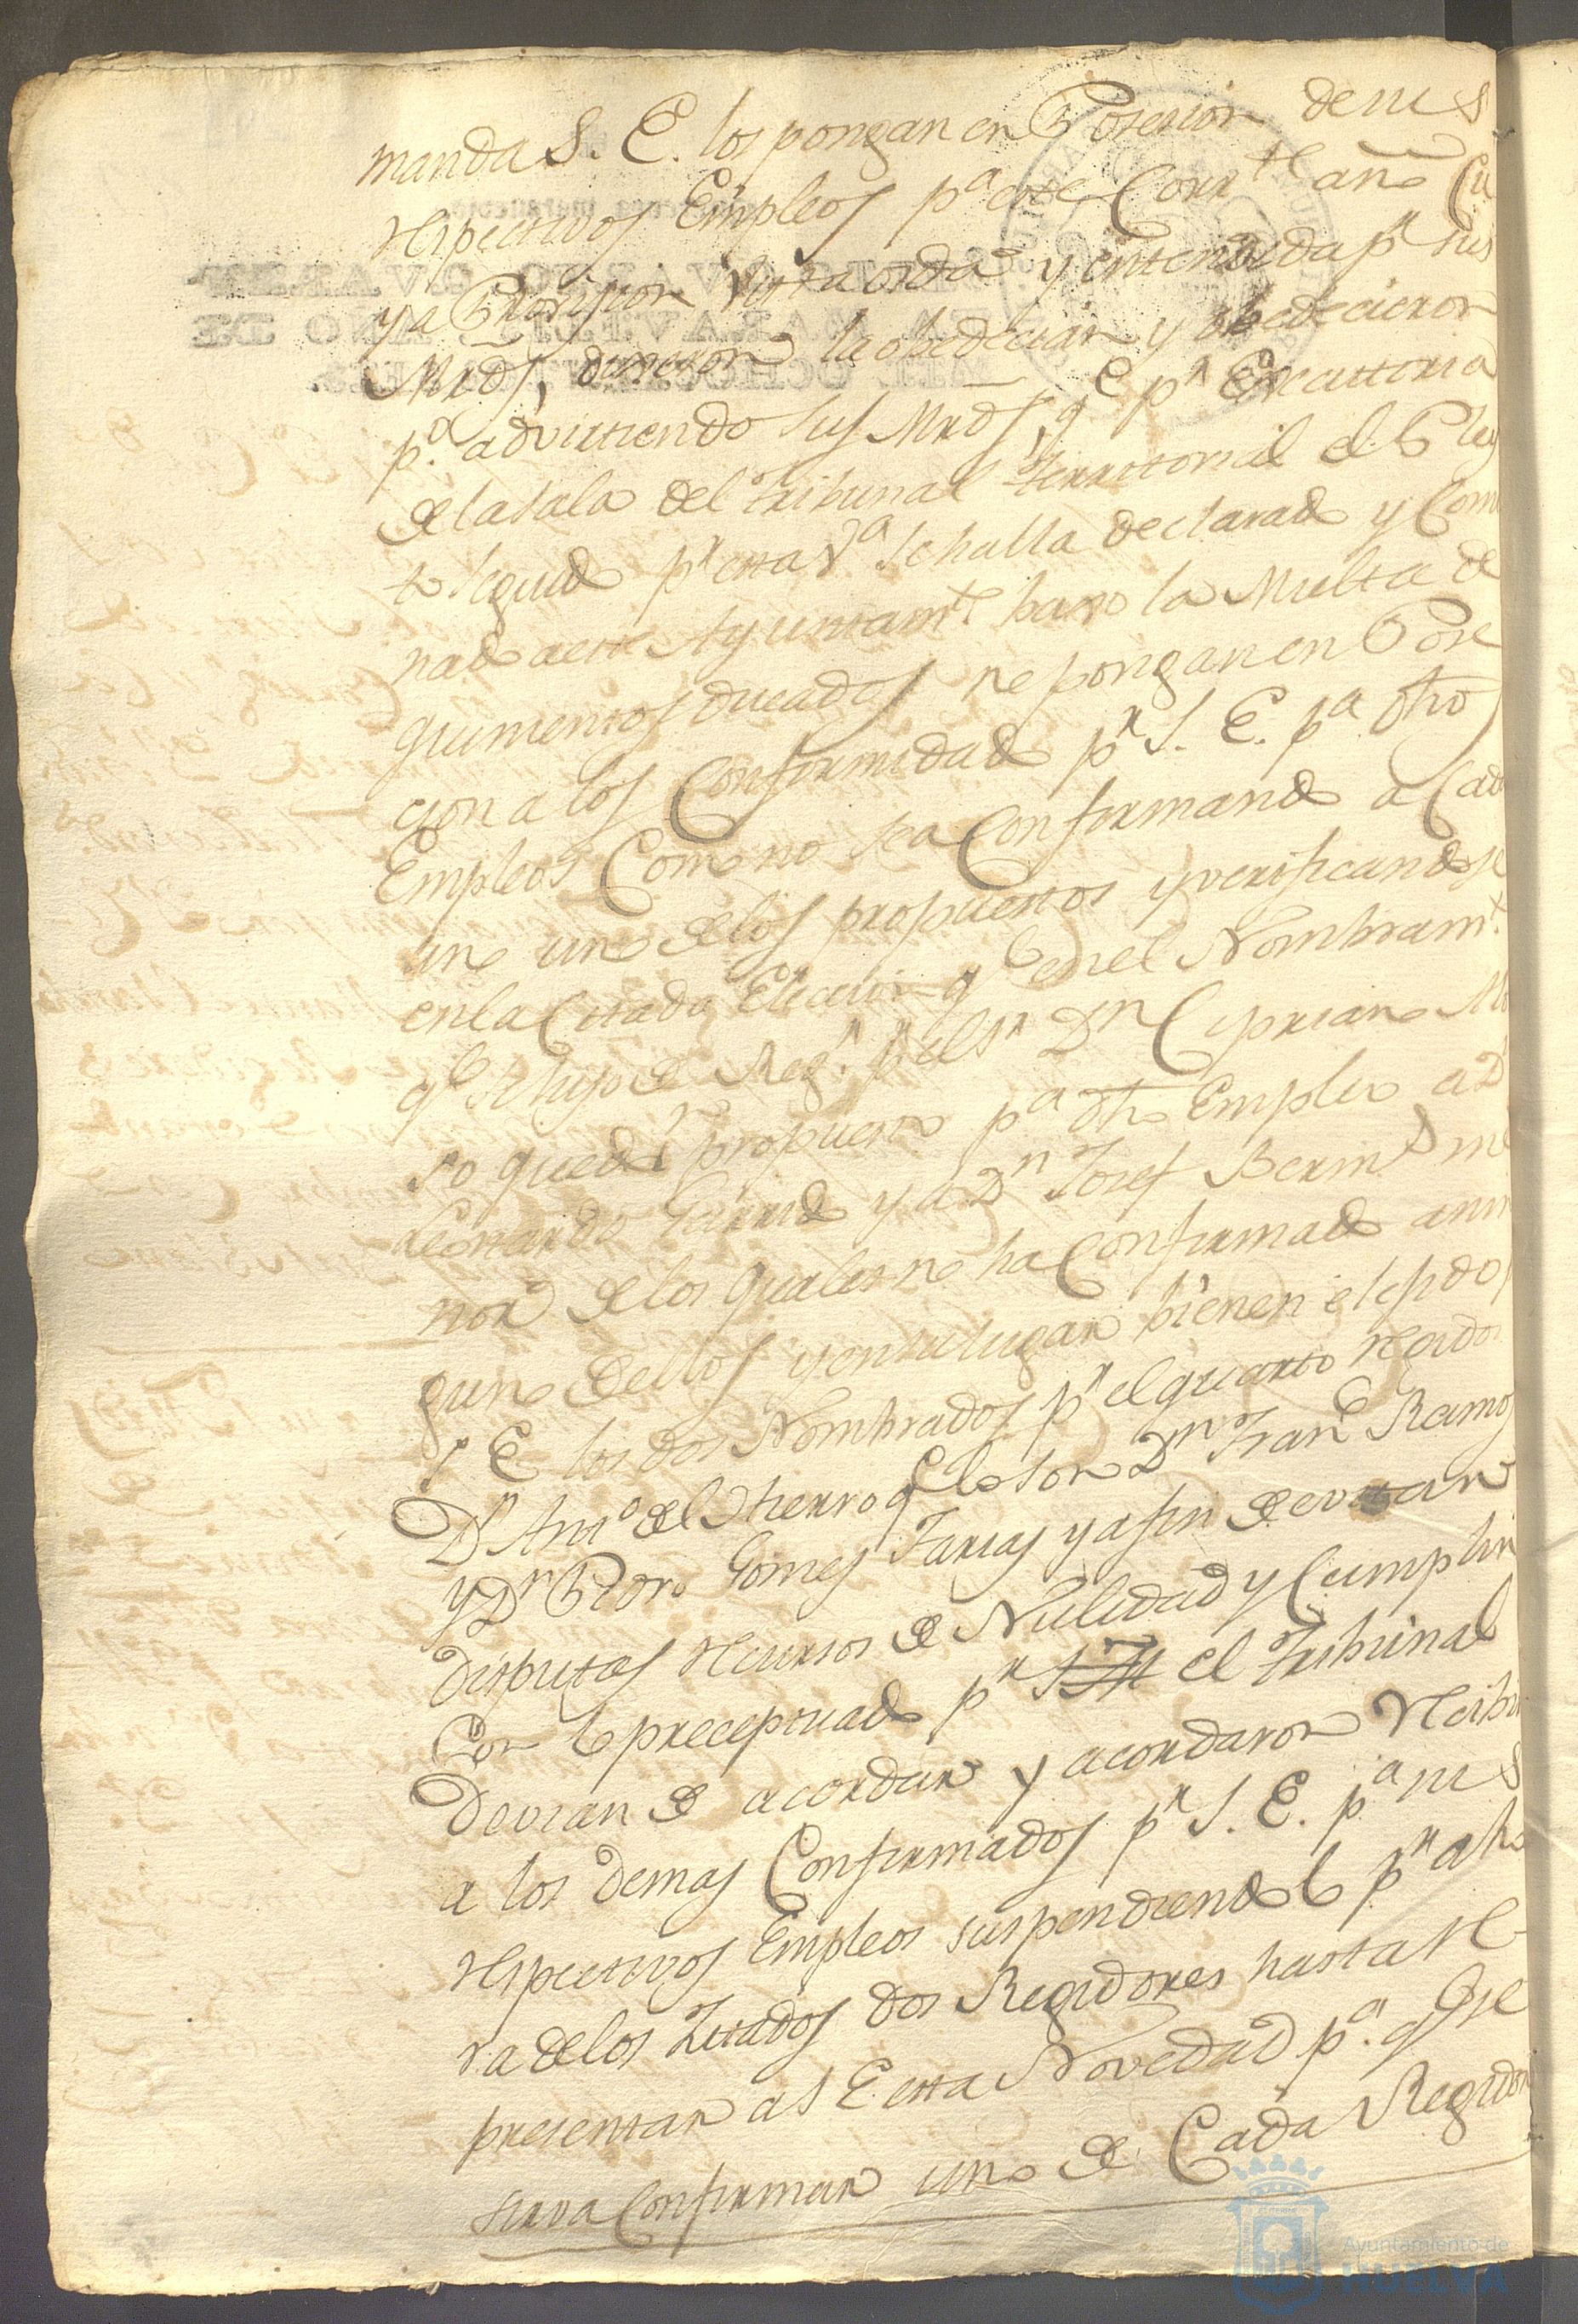 manda S. E. los pongan en Posesion de sus
respectivos Empleos pa este Corrte año Cu
ya Provision vista oida y entendida pr sus
Mrds, dixeron la obedecian y obedecieron
pa. advirtiendo sus Mrds, qe pr Executoria
de la sala del Tribunal territorial del Pley
to seguido pr esta Va se halla declarado y Com
nado a este Ayuntamte baxo la Multa de
quinientos ducados ne pongan en Pose
cion a los Confirmidad pr S. E. pa otro
Empleos Como no sea Confirmando a Cad
uno uno de los propuestos y verificandose
en la Citada Eleccion qe en el Nombramt
qe se hizo de Regr. pr el Sr Dn Cipriano
so quedó propuesto pa otro Empleo a D
Leonardo Garrido y a Dn Josef Berm
nor de los quales no ha Confirmado anin
guno de ellos y en su lugar bienen elejidos
S. E. los dos Nombrados pr el quarto rexidor
Dn Anto del Hierro qe lo son Dn Franco Ramos
y Dn Pedro Gomes Farias y a fin de evitar
disputas recursos de Nulidad y Cumplin
Con lo preceptuado pr el Tribunal
Devian de acordar y acordaron recibi
a los demas Confirmados pr S. E. pa sus
respectivos Empleos suspendiendolo pr aho
ra de los Zitados dos Regidores hasta re
presentar a S E esta Novedad pa. qe se
sirva Confirmar uno de Cada Regidor
Ayuntamiento de
HUELVA